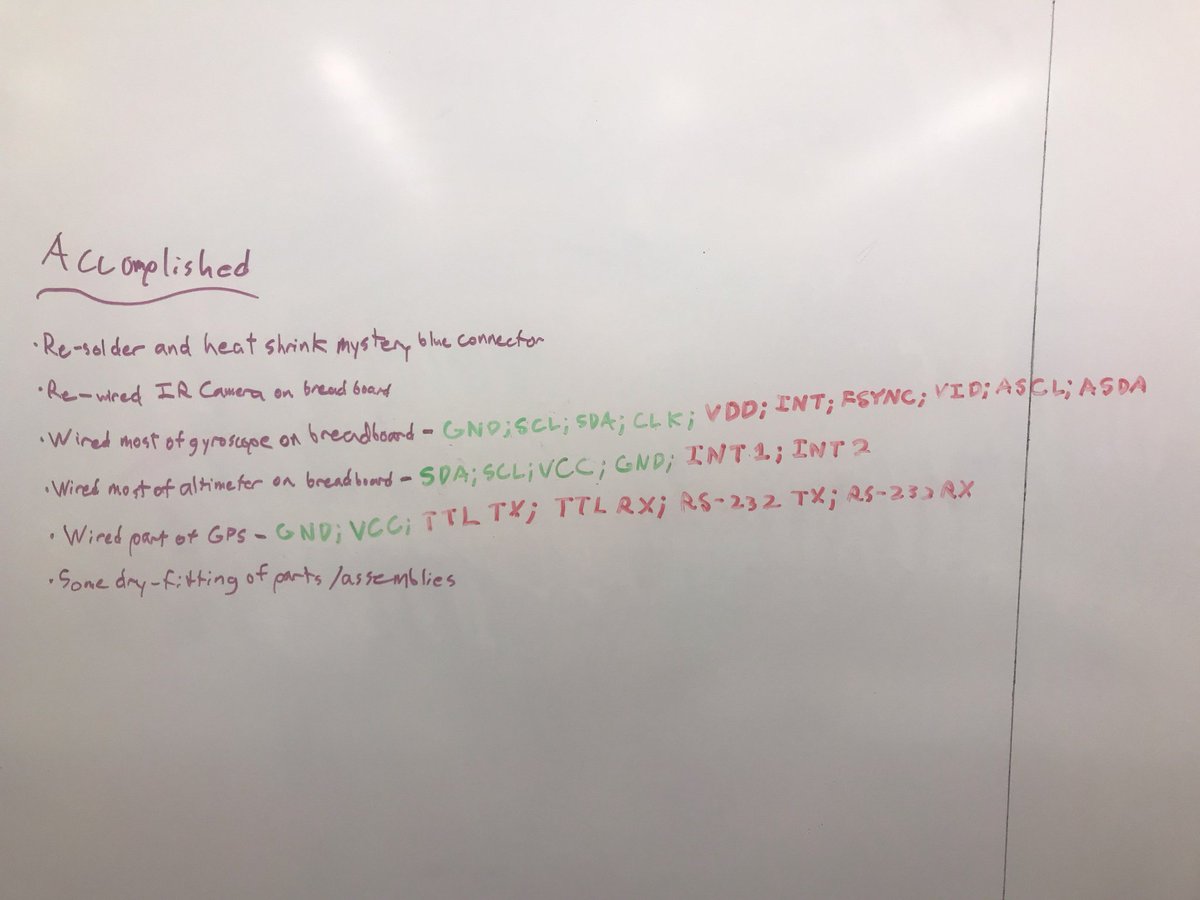 Accomplished
·Re-solder and heat shrink mystery blue connector
·Re-wired IR Camera on bread board
·Wired most of gyroscope on breadboard - GND; SCL; SDA; CLK; VDD; INT; FSYNC; VID; ASCL; ASDA
·Wired most of altimeter on breadboard - SDA; SCL; VCC; GND; INT 1; INT 2
·Wired part of GPS - GND; VCC; TTL TX; TTL RX; RS-232 TX; RS-232 RX
·Some dry-fitting of parts/assemblies